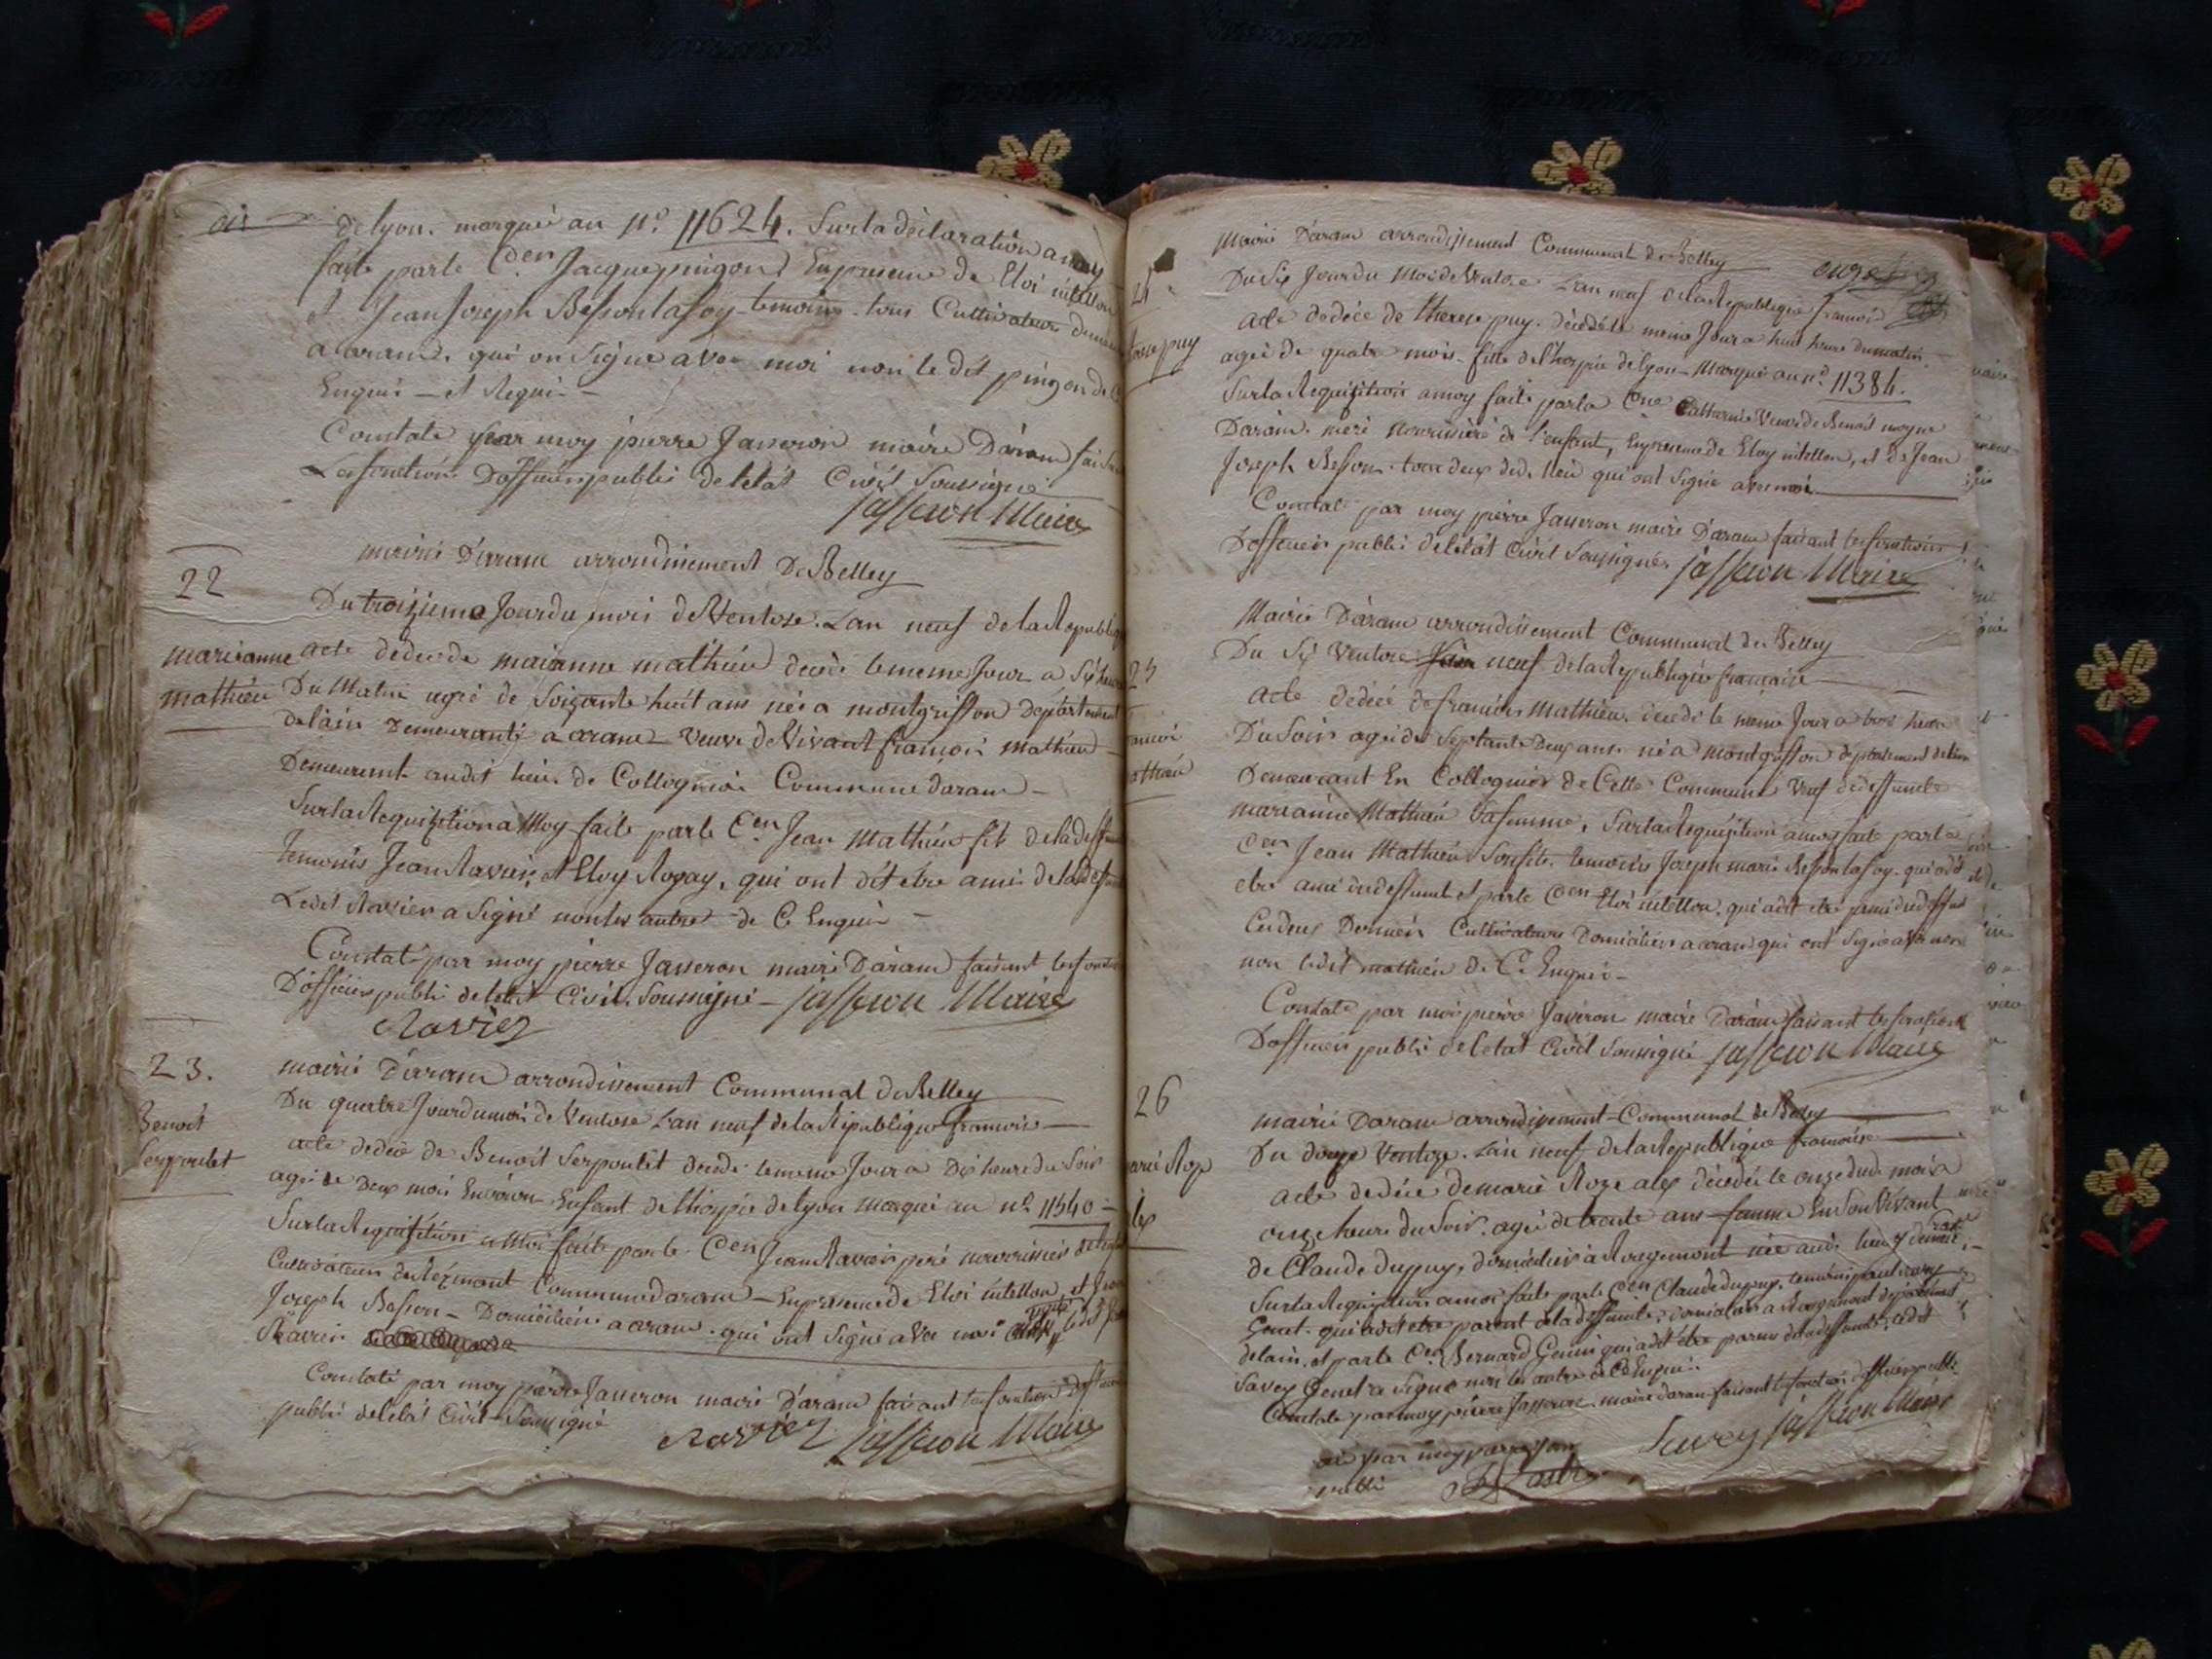 dix
de lyon. marqué au n.º 11624. Sur la déclaration a moy
faite par le C.en Jacque pingon En presence de Eloi intellon
et Jean Joseph Besson lasoy temoins tous Cultivateurs
a arand. qui on signe avec moi non le dit pingon de
Enquis et Requi
Constaté par moy pierre Jasseron maire D'arand
Les fonctions D'officier public de l'état Civil Soussigné
Jasseron Maire
22
mairie D'arand arrondissement De Belley
Du troizieme Jour du mois de Ventose. L'an neuf de la
marianne
mathieu
acte de deces de marianne mathieu decedé le meme Jour a Six
Du Matin agé de Soixante huit ans née a montgriffon Departement
de l'ain Demeurante a arand Veuve de Vivant françois Mathieu
Demeurant audit lieu de Collognoi Commune d'arand
Sur la Requisition a Moy faite par le C.en Jean Mathieu fils de la
temoins Jean Ravier, et Eloy Rogay, qui ont dit etre ami de la
Le dit Ravier a Signé non les autres de Ce Enquis
Constaté par moy pierre Jasseron maire D'arand faisant les
D'officier public de l'etat Civil. Soussigné Jasseron Maire
Ravier
23.
mairie D'arand arrondissement Communal de Belley
Benoit
Serpoulet
Du quatre Jour du moi de Ventose L'an neuf de la Republique francoise
acte de decé de Benoit Serpoulet decedé le meme Jour a Dix heure du Soir
agé de Deux mois Environ Enfant de l'hospice de lyon marqué au nº 11540
Sur la Requisition a Moi faite par le C.en Jean Ravier peré nourricier
Cultivateur Commune d'arand En presence de Eloi intellon, et
Joseph Besson Domicilier a arand. qui ont Signe avec moi
Ravier
Constaté par moy pierre Jasseron maire D'arand faisant les fonctions
public de l'etat Civil Soussigné
Ravier Jasseron Maire
Mairie D'arand arrondissement Communal de Belley
onze
puy
Du Six Jour du Moi de Ventose L'an neuf de la Republique
acte de decé de therese puy. décédé le meme Jour a huit heure du matin
agé de quatre mois fille de l'hospice de lyon Marqué au nº 11384.
Sur la Requisition a moy faite par la C.ne Catherine Veuve de Benoit moyne
D'arand. meré nourriciere de l'enfant, En presence de Eloy intellon, et de Jean
Joseph Besson tous deux dud. lieu qui ont Signé avec moi
Constaté par moy pierre Jasseron maire D'arand faisant les fonctions
D'officier public de l'etat Civil Soussigné. Jasseron Maire
Mairie D'arand arrondissement Communal de Belley
Du Six Ventose neuf de la Republique française
acte de décé de françois Mathieu. decedé le meme Jour a trois heure
Du Soir agé de Septante Deux ans né a montgriffon département de l'ain
Demeurant En Collognier de Cette Commune Veuf de deffuncte
marianne Mathieu Sa femme, Sur la Requisition a moy faite par le
C.en Jean Mathieu Son fils. temoins Joseph marie Besson lasoy. qui a dit
etre ami du deffunt et par le C.en Eloi intellon. qui a dit etre
Ces deux Derniers Cultivateurs Domicilies a arand qui ont Signé avec
non le dit mathieu de Ce Enquis
Constaté par moi pierre Jasseron maire D'arand faisant les fonctions
D'officier public de l'etat Civil Soussigné Jasseron Maire
26
mairie D'arand arrondissement Communal de Belley
Du douze Ventose. L'an neuf de la Republique française
acte de déce de marie Roze alex décédée le onze dud. mois a
onze heure du Soir. agé de trente ans femme En Son Vivant
de Claude Dupuy, domicilier à Rougemont née aud. lieu
Sur la Requisition a moi faite par le C.en Claude Dupuy, temoins
Genet. qui a dit etre parent de la deffunte, domicilier a Rougemont departement
de l'ain, et par le C.en Bernard Genin qui a dit etre parent de la deffunte, le dit
Savey Genet a Signé non les autre de Ce Enquis
Constaté par moy pierre Jasseron maire d'arand faisant les fonction d'officier public
Savey Jasseron Maire
par moy